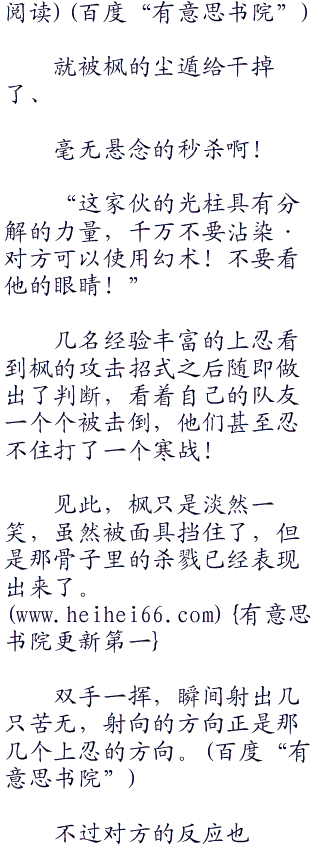 阅读）(百度“有意思书院”)
就被枫的尘遁给干掉
了、
毫无悬念的秒杀啊！
“这家伙的光柱具有分
解的力量，千万不要沾染·
对方可以使用幻术！不要看
他的眼睛！”
几名经验丰富的上忍看
到枫的攻击招式之后随即做
出了判断，看着自己的队友
一个个被击倒，他们甚至忍
不住打了一个寒战！
见此，枫只是淡然一
笑，虽然被面具挡住了，但
是那骨子里的杀戮已经表现
出来了。
(www.heihei66.com){有意思
书院更新第一}
双手一挥，瞬间射出几
只苦无，射向的方向正是那
几个上忍的方向。(百度“有
意思书院”)
不过对方的反应也